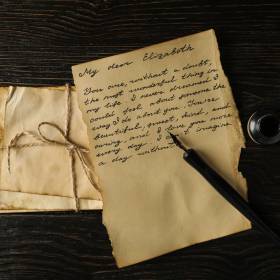 My dear Elizabeth
You are, without a doubt,
the most wonderful thing in
my life. I never dreamed I
could feel about someone the
way I do about you. You're
beautiful, smart, kind, and
funny, and I love you more
every day. I can't imagine
a day without